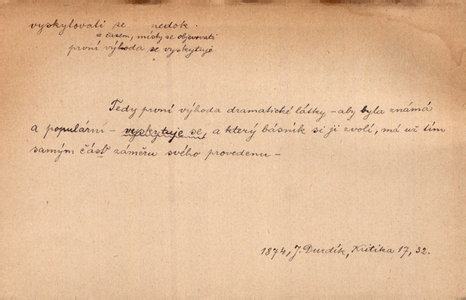 vyskytovati se nedok.
a časem, místy se objevovati
první výhoda se vyskytuje
Tedy první výhoda dramatické látky – aby byla známá
a populární – vyskytuje se, a který básník si ji zvolí, má už tím
samým část záměru svého provedenu –
1874, J. Durdík, Kritika 17, 32.